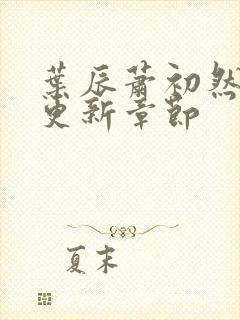 葉辰蕭初然
更新章節
夏末